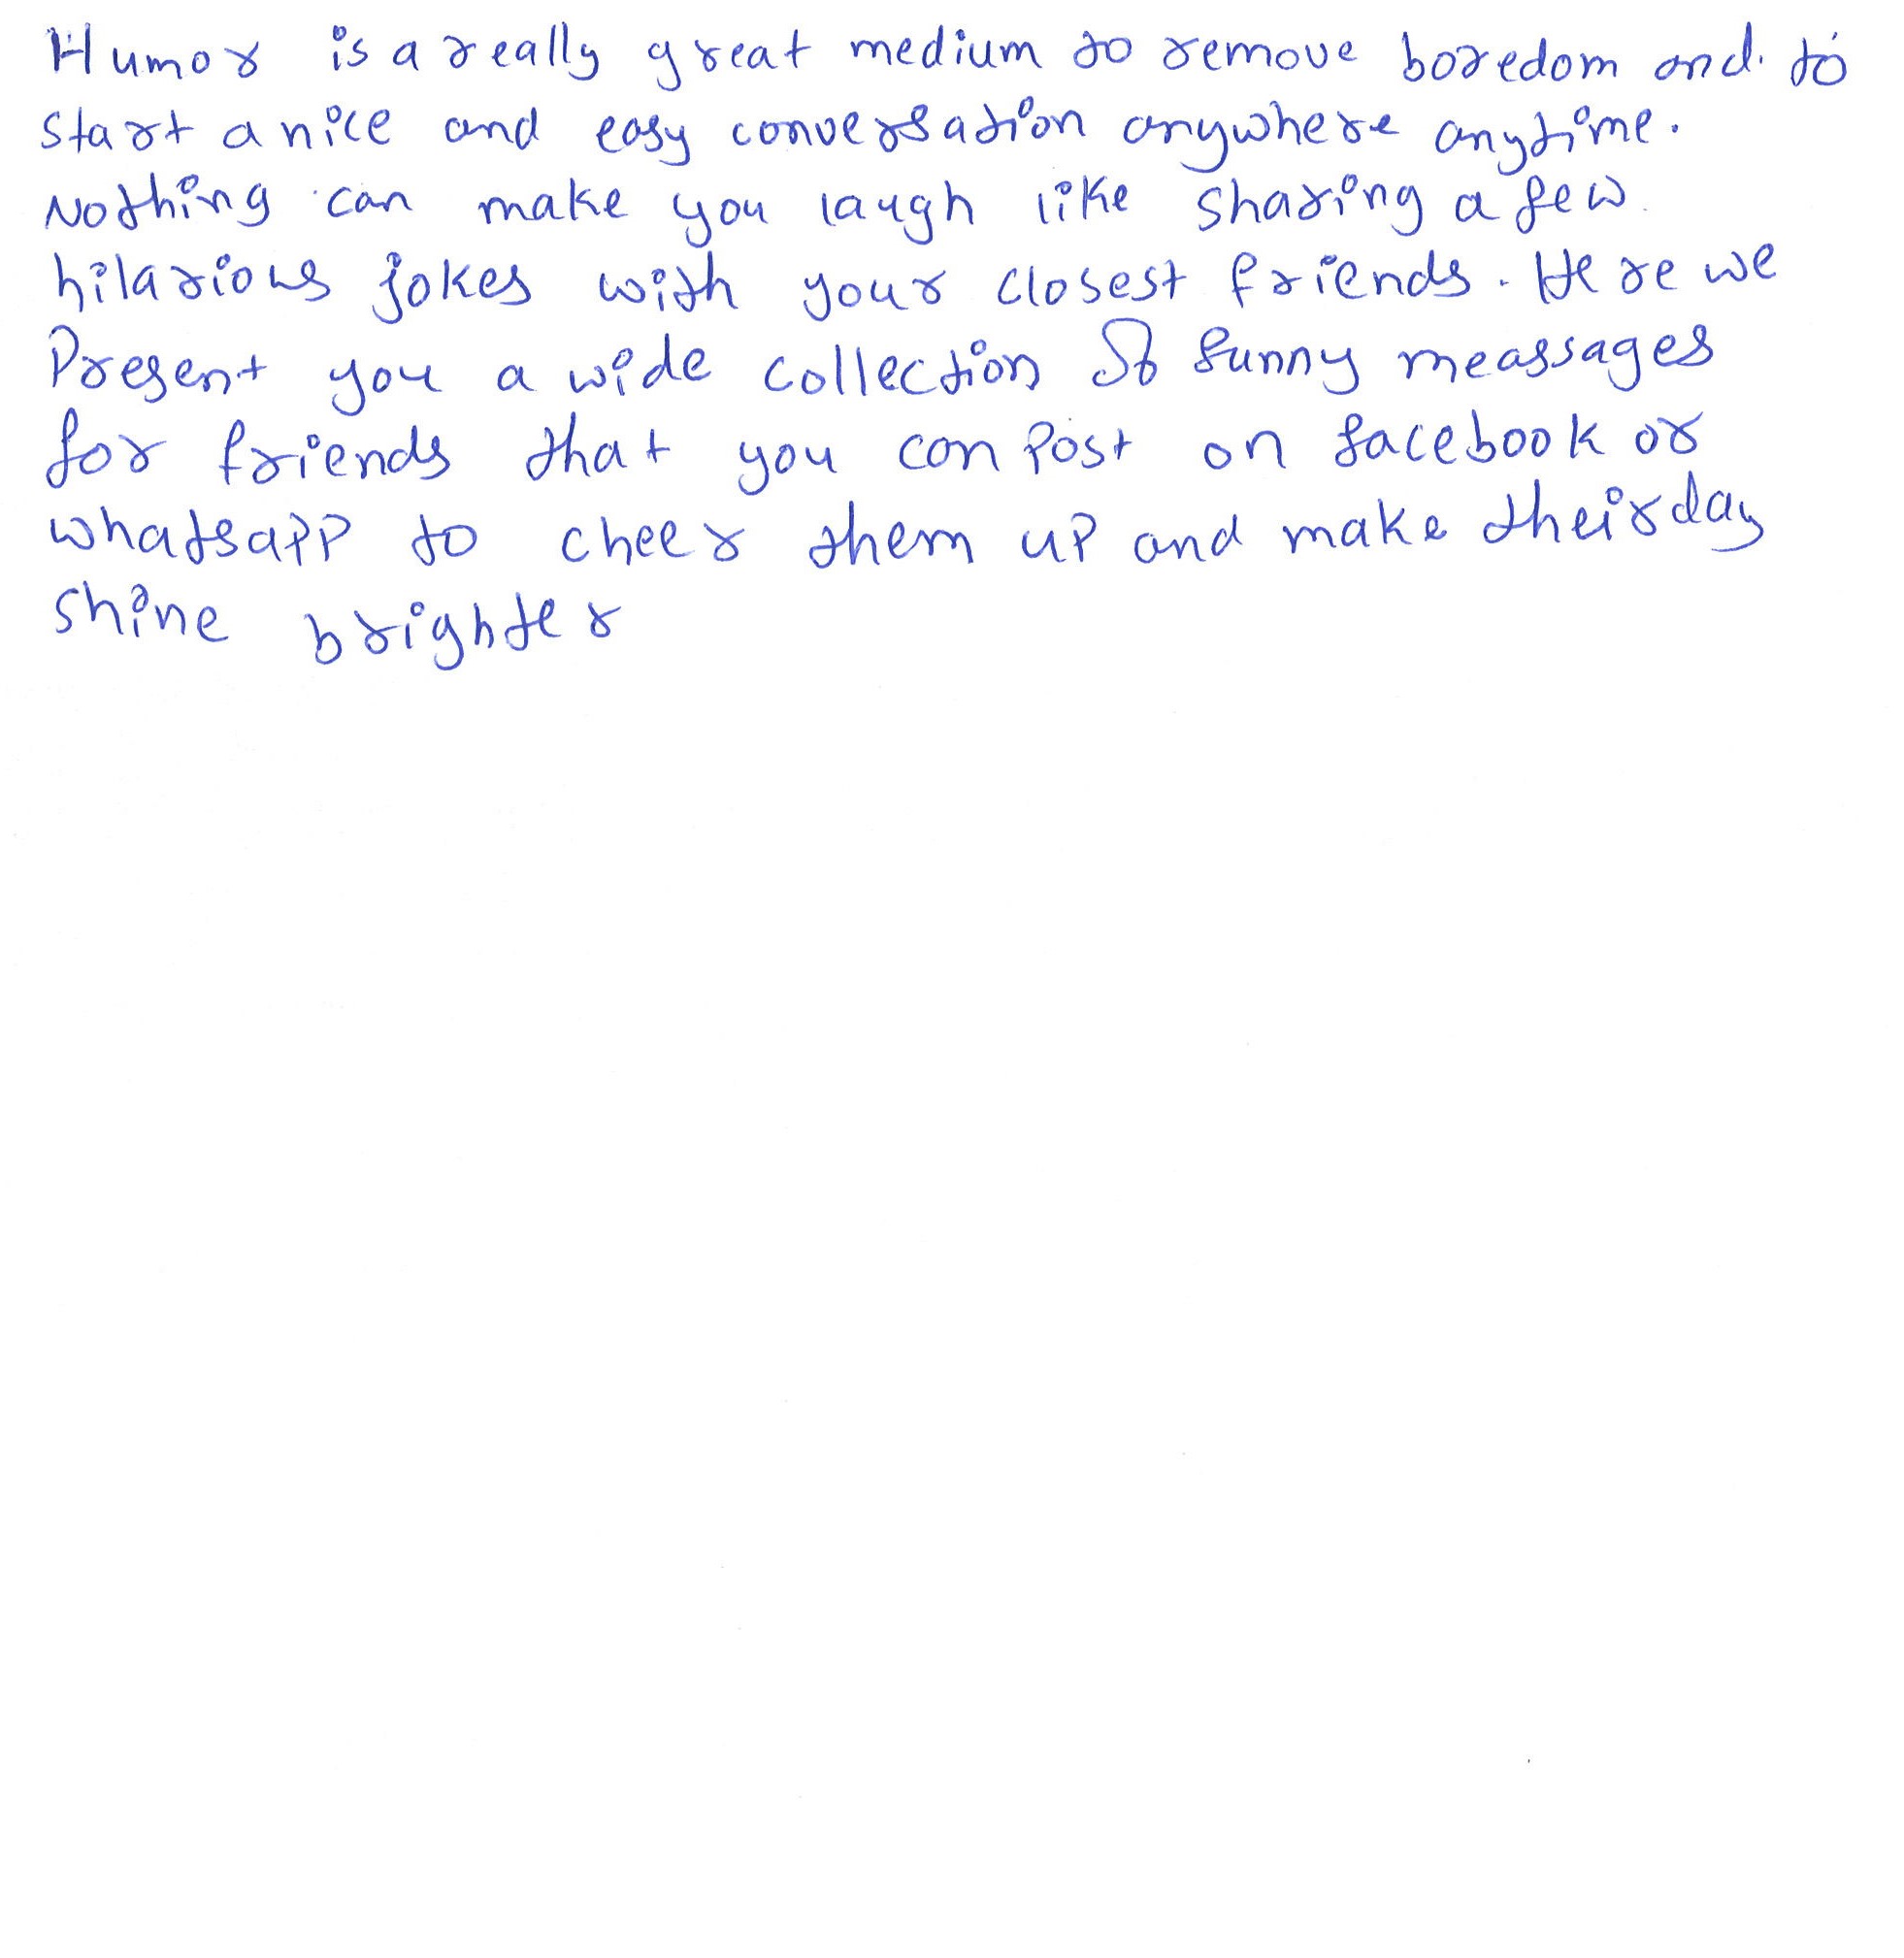 Humor is a really great medium to remove boredom and to
start a nice and easy conversation anywhere anytime.
Nothing can make you laugh like sharing a few
hilarious jokes with your closest friends. Here we
Present you a wide collection of funny meassages
for friends that you can Post on facebook or
whatsapp to cheer them up and make their day
shine brighter